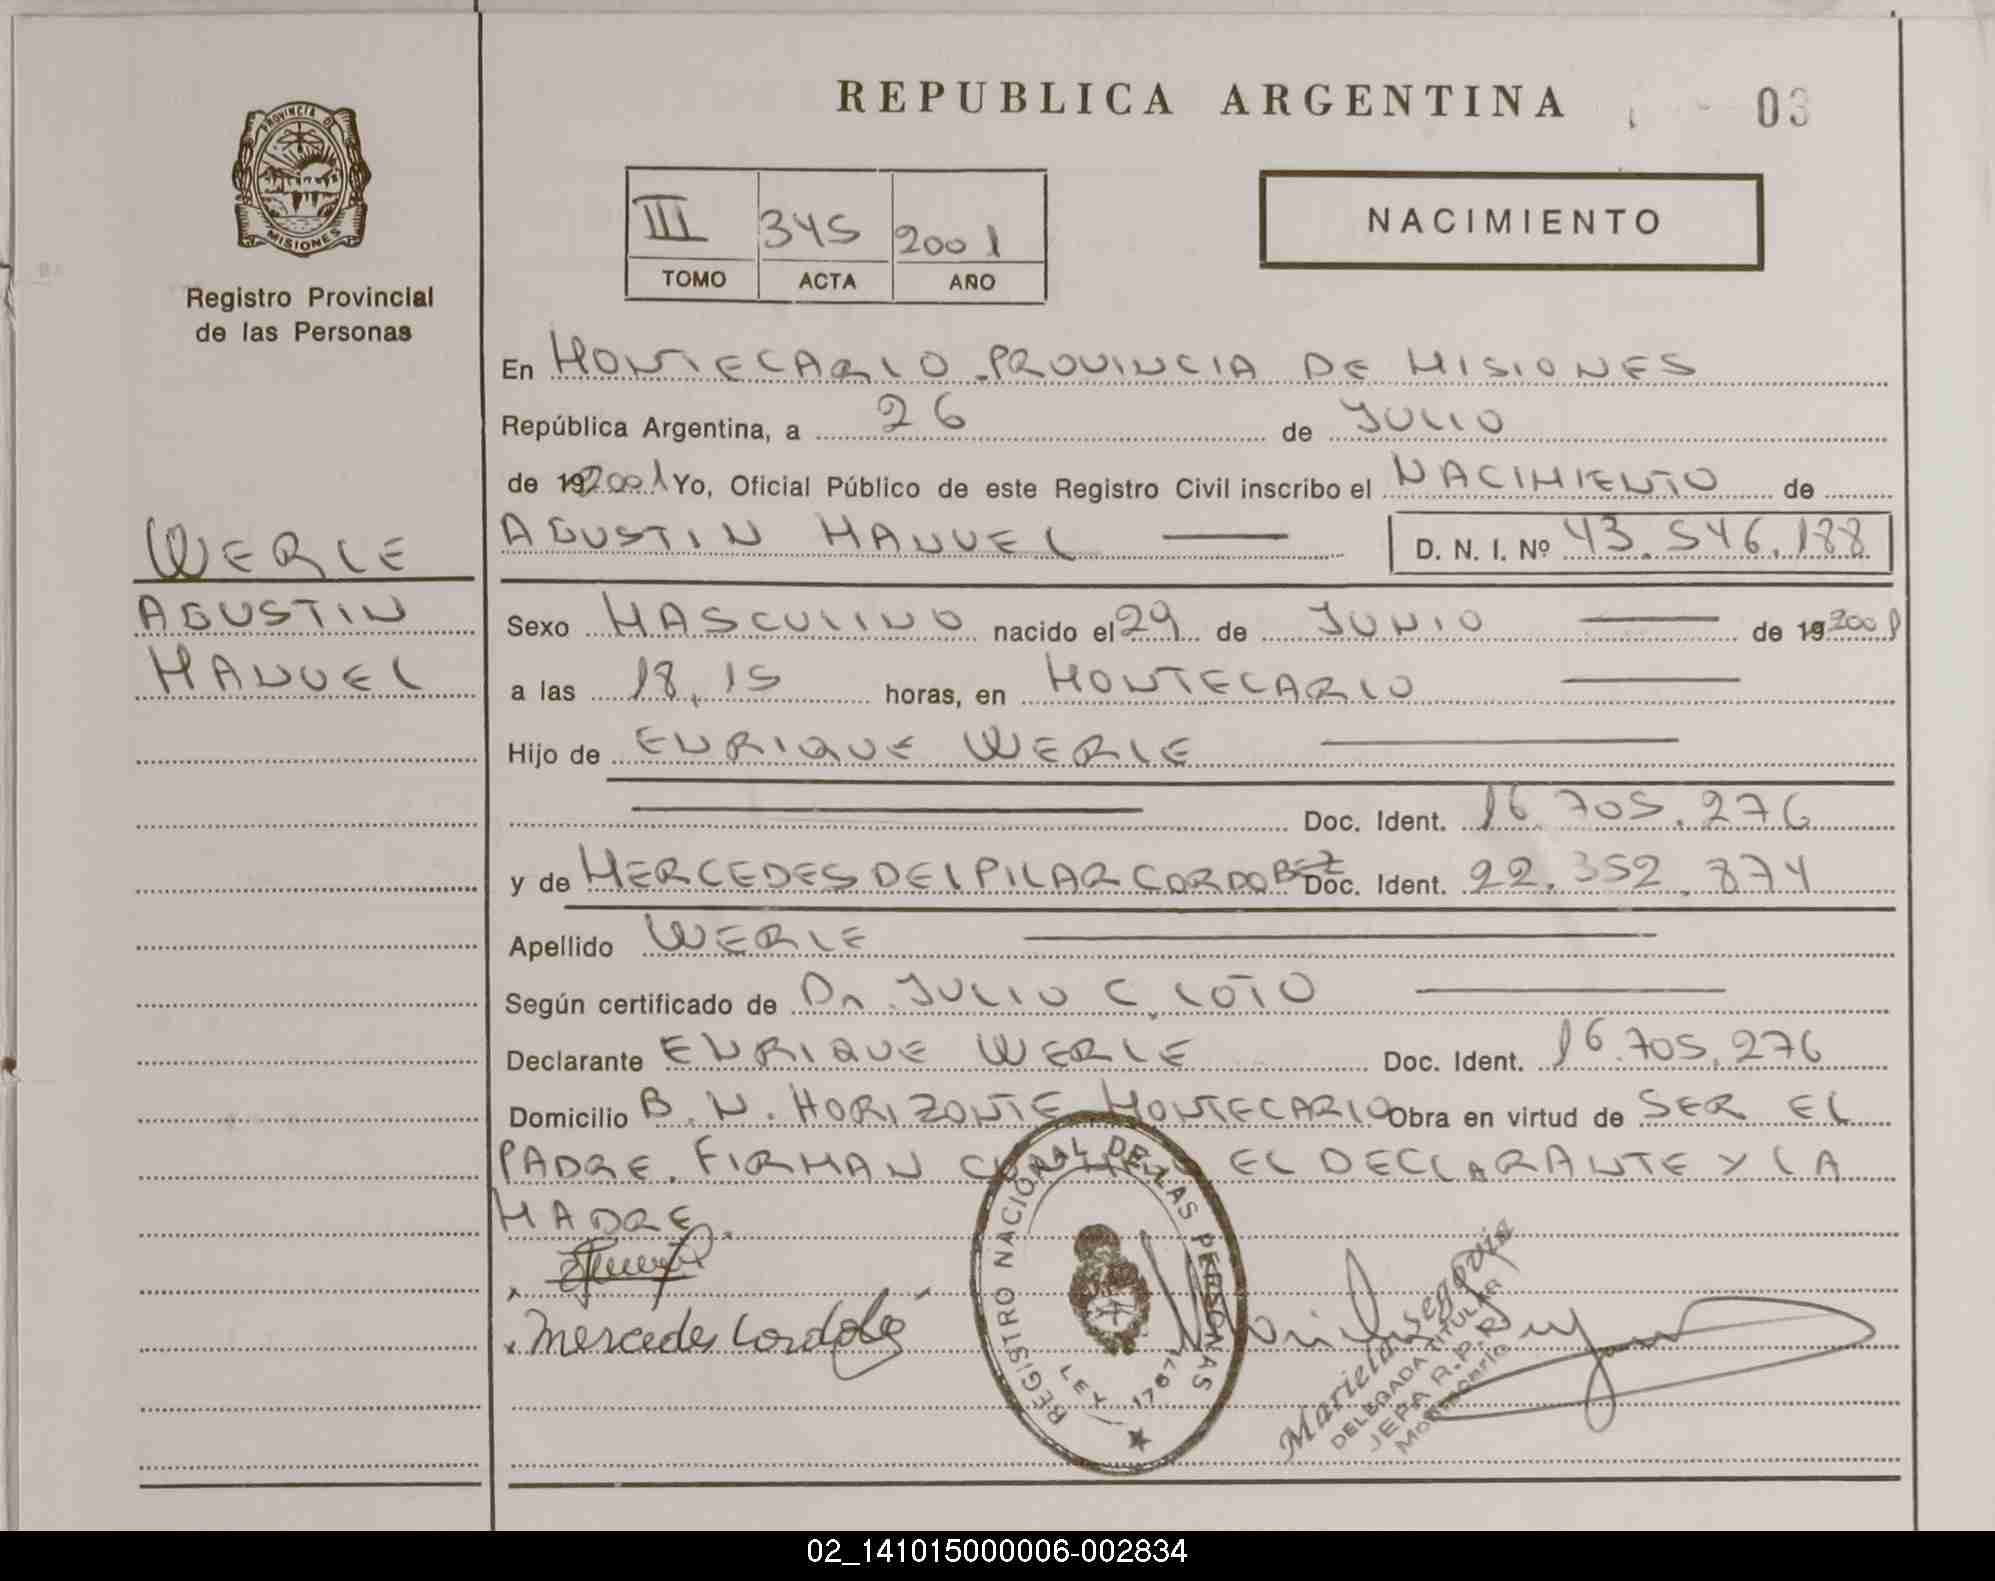 REPUBLICA ARGENTINA
03
PROVINCIA D
MISIONES
Registro Provincial
de las Personas
III 345 2001
TOMO ACTA AÑO
NACIMIENTO
En MONTECARLO. PROVINCIA DE MISIONES
República Argentina, a 26 de JULIO
de 192001 Yo, Oficial Público de este Registro Civil inscribo el NACIMIENTO de
AGUSTIN MANUEL D. N. I. Nº 43.546.188
WERLE
AGUSTIN
MANUEL
Sexo MASCULINO nacido el 29 de JUNIO de 192001
a las 18,15 horas, en MONTECARLO
Hijo de ENRIQUE WERLE
Doc. Ident. 16.705.276
y de MERCEDES DEL PILAR CORDOBEZ Doc. Ident. 22.352.874
Apellido WERLE
Según certificado de Dr. JULIO C. LOTO
Declarante ENRIQUE WERLE Doc. Ident. 16.705.276
Domicilio B. N. HORIZONTE MONTECARLO Obra en virtud de SER EL
PADRE. FIRMAN CONMIGO EL DECLARANTE Y LA
MADRE.
Mercedes Cordobez
REGISTRO NACIONAL DE LAS PERSONAS
LEY 17671
Mariela Segovia
DELEGADA TITULAR
JEPA R.P.P.
Montecarlo
02_141015000006-002834